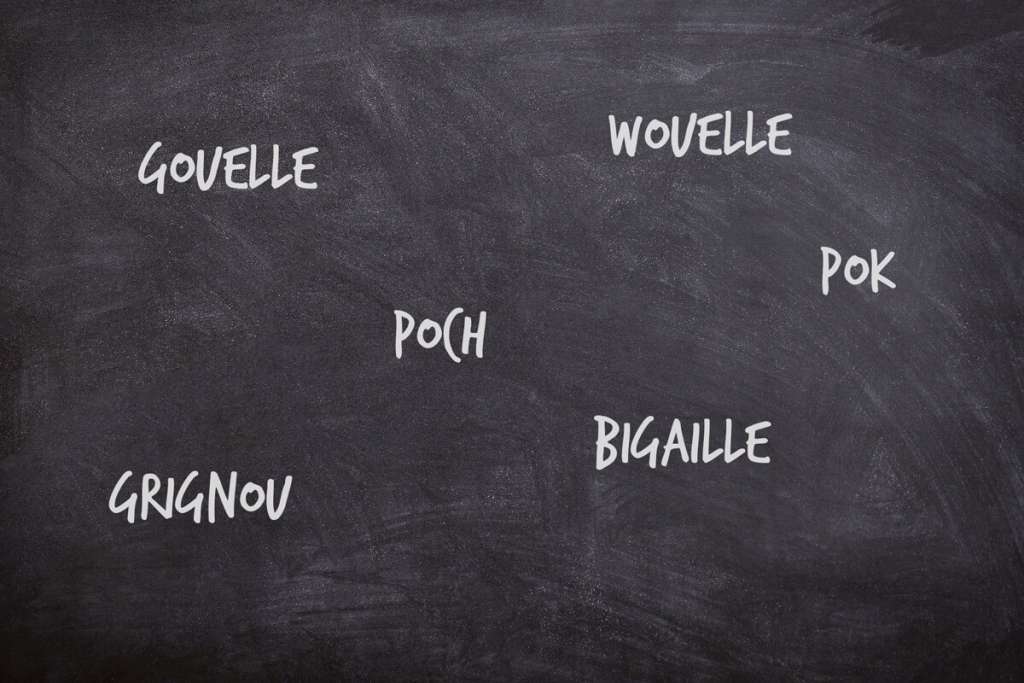 GOUELLE
WOUELLE
POK
POCH
BIGAILLE
GRIGNOU